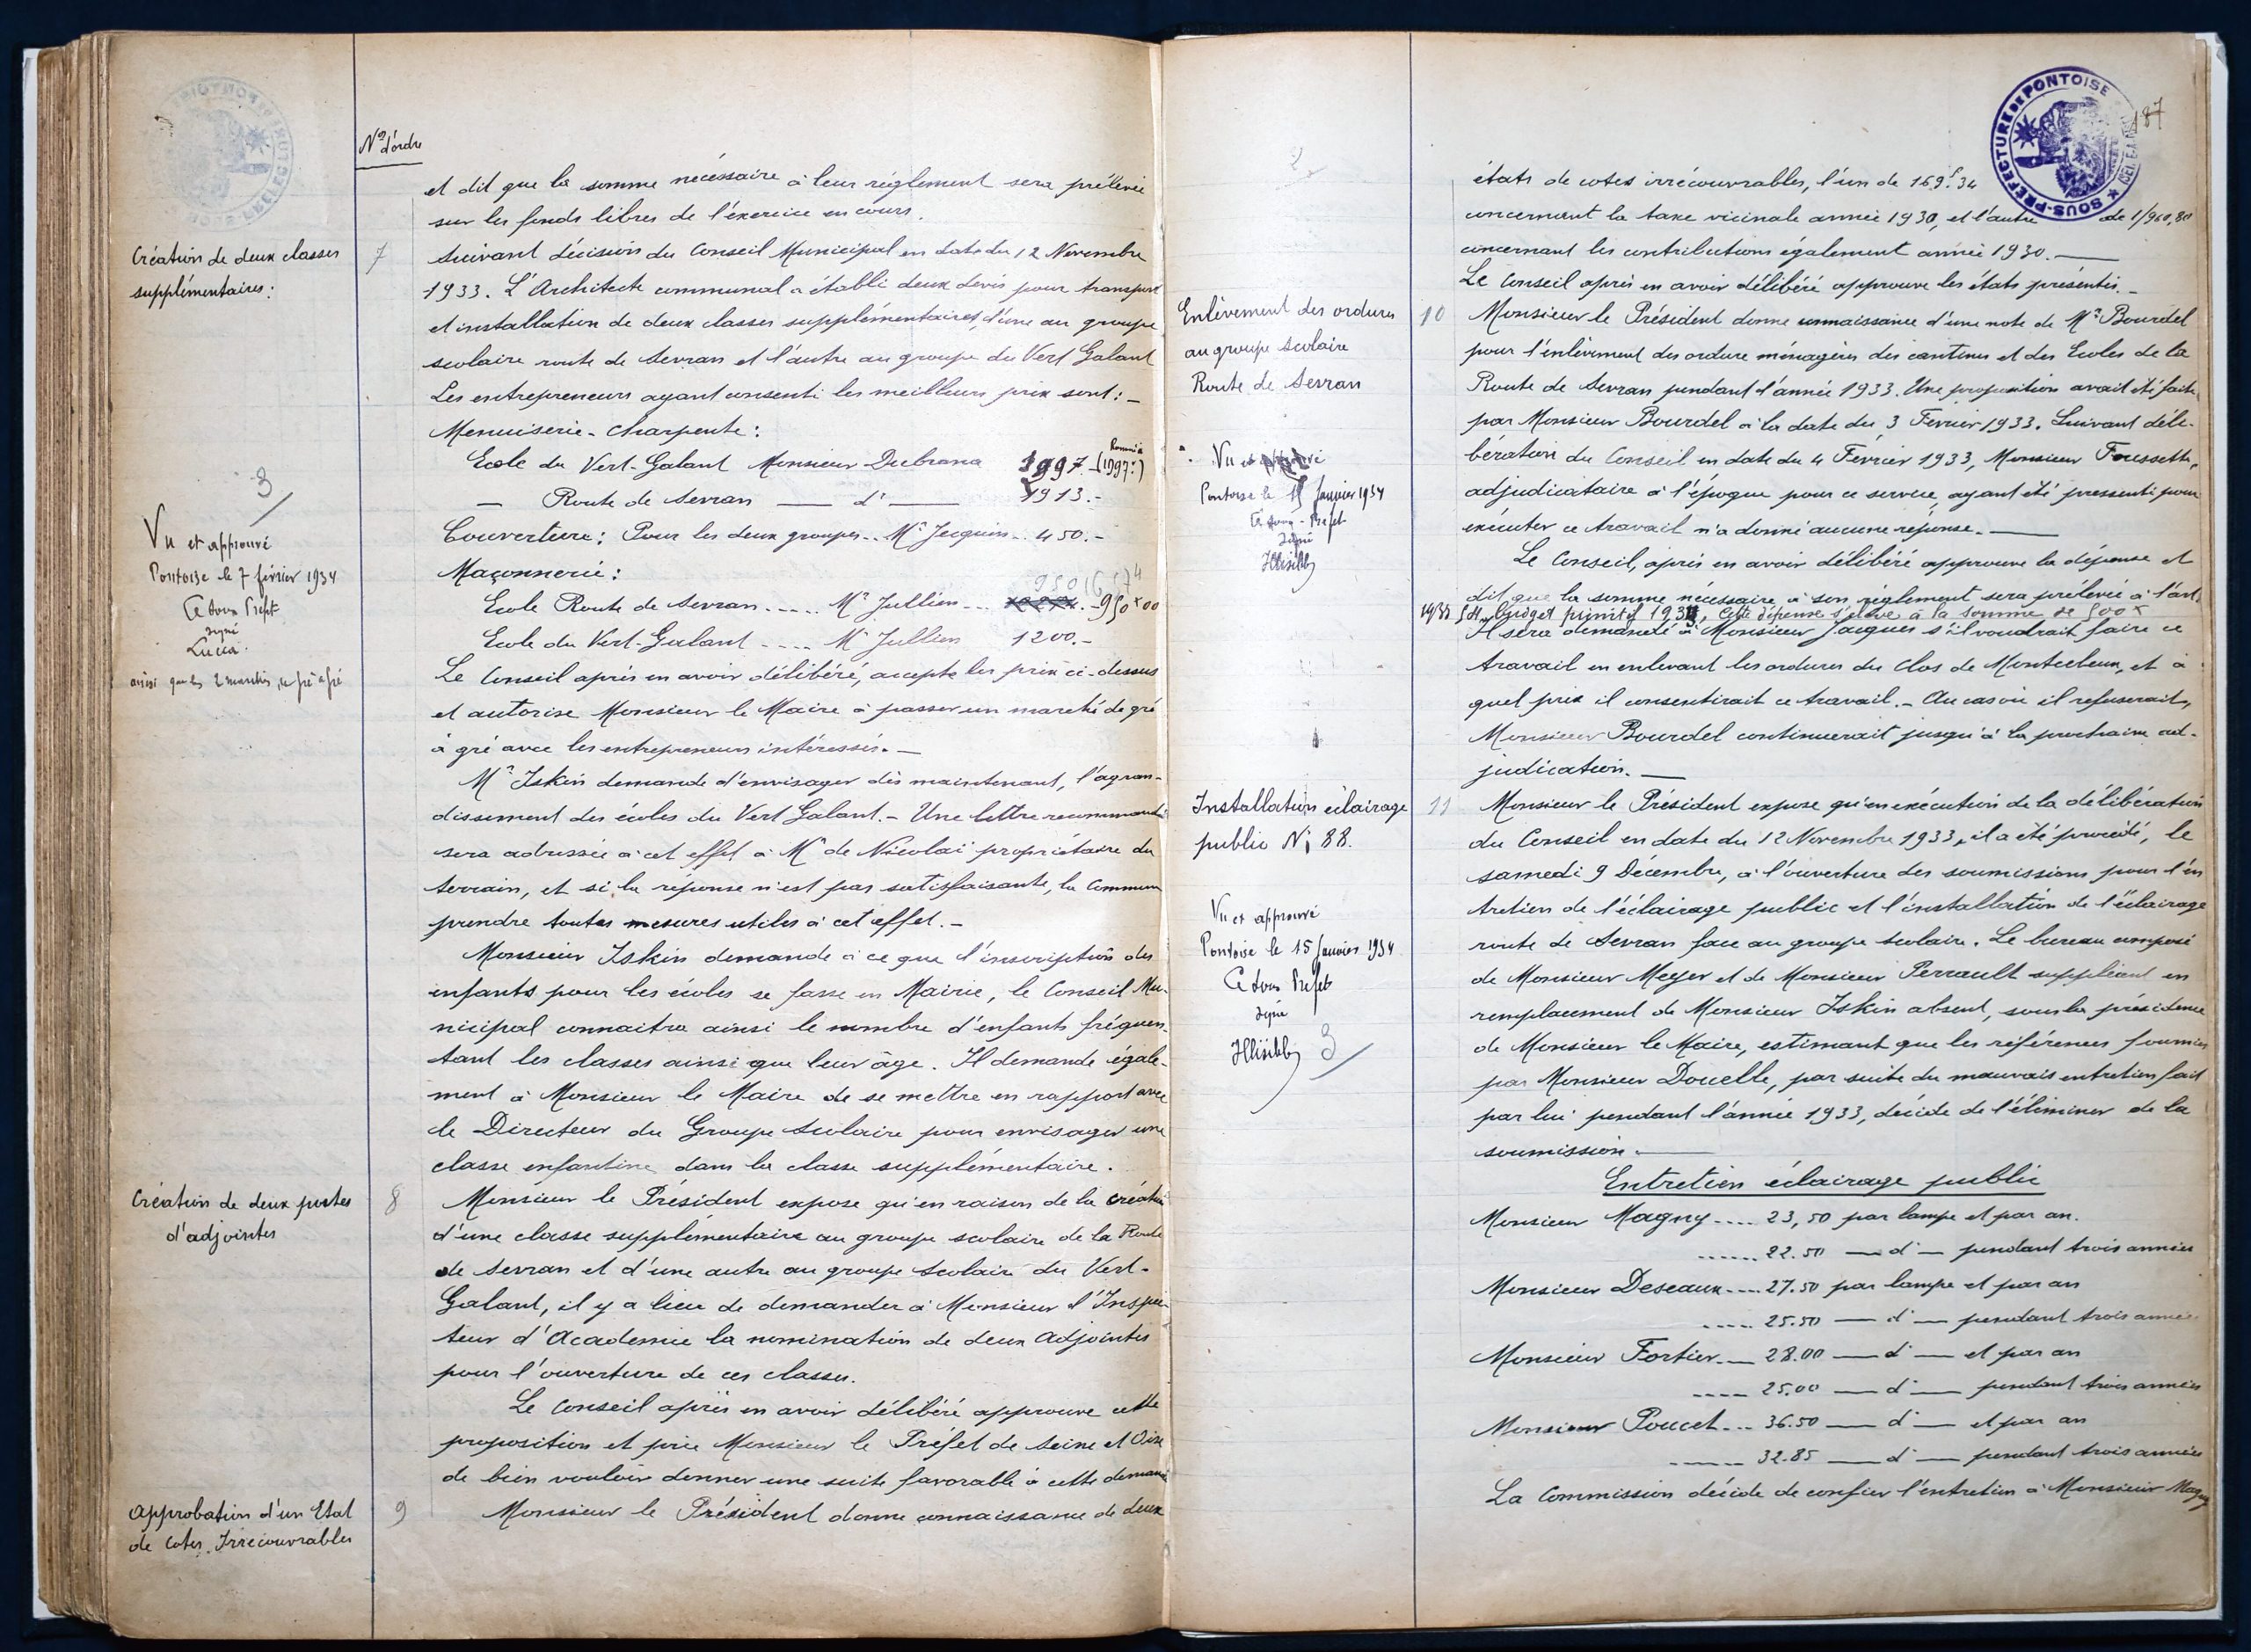 Nos d'ordre
et dit que la somme nécessaire à leur réglement sera prélevée
sur les fonds libres de l'exercice en cours.
Création de deux classes
supplémentaires:
7
Suivant décision du Conseil Municipal en date du 12 Novembre
1933. L'Architecte communal a établi deux devis pour transport
et installation de deux classes supplémentaires, l'une au groupe
scolaire route de Sevran et l'autre au groupe du Vert Galant
Les entrepreneurs ayant consenti les meilleurs prix sont: -
Menuiserie - Charpente:
Ecole du Vert-Galant Monsieur Dubrana 1997 - (1997.)
— Route de Sevran — d° — 1913.-
Couverture: Pour les deux groupes - Mr Jacquin - 450.-
Maçonnerie:
Ecole Route de Sevran ..... Mr Jullien ... 950 00
Ecole du Vert-Galant .... Mr Jullien 1200.-
Le Conseil après en avoir délibéré, accepte les prix ci-dessus
et autorise Monsieur le Maire à passer un marché de gré
à gré avec les entrepreneurs intéressés.—
3
Vu et approuvé
Pontoise le 7 février 1934
Le Sous Préfet
signé
Lucca.
ainsi que les 2 marchés de gré à gré
Mr Iskin demande d'envisager dès maintenant, l'agran-
dissement des écoles du Vert Galant.- Une lettre recommandée
sera adressée à cet effet à Mr de Nicolaï propriétaire du
terrain, et si la réponse n'est pas satisfaisante, la Commune
prendre toutes mesures utiles à cet effet.-
Monsieur Iskin demande à ce que l'inscription des
enfants pour les écoles se fasse en Mairie, le Conseil Mu-
nicipal connaitra ainsi le nombre d'enfants fréquen-
tant les classes ainsi que leur âge. Il demande égale-
ment à Monsieur le Maire de se mettre en rapport avec
le Directeur du Groupe Scolaire pour envisager une
classe enfantine dans la classe supplémentaire.
Création de deux postes
d'adjointes
8
Monsieur le Président expose qu'en raison de la création
d'une classe supplémentaire au groupe scolaire de la Route
de Sevran et d'une autre au groupe Scolaire du Vert-
Galant, il y a lieu de demander à Monsieur l'Inspec-
teur d'Academie la nomination de deux Adjointes
pour l'ouverture de ces classes.
Le Conseil après en avoir délibéré approuve cette
proposition et prie Monsieur le Préfet de Seine et Oise
de bien vouloir donner une suite favorable à cette demande
Approbation d'un Etat
de Cotes Irrécouvrables
9
Monsieur le Président donne connaissance de deux
SOUS-PRÉFECTURE DE PONTOISE
187
états de cotes irrécouvrables, l'un de 169f.34
concernant la taxe vicinale année 1930, et l'autre de 1/960,80
concernant les contributions également année 1930.—
Le Conseil après en avoir délibéré approuve les états présentés.-
Enlèvement des ordures
au groupe Scolaire
Route de Sevran
10
Monsieur le Président donne connaissance d'une note de Mr Bourdel
pour l'enlèvement des ordure ménagères des cantines et des Ecoles de la
Route de Sevran pendant l'année 1933. Une proposition avait été faite
par Monsieur Bourdel à la date du 3 Fevrier 1933. Suivant déli-
bération du Conseil en date du 4 Février 1933, Monsieur
adjudicataire à l'époque pour ce service, ayant été pressenti pour
exécuter ce travail n'a donné aucune réponse.—
Vu et approuvé
Pontoise le 15 Janvier 1934
Le Sous-Préfet
signé
Illisible
Le Conseil, après en avoir délibéré approuve la dépense et
dit que la somme nécessaire à son réglement sera prélevée à l'art.
budget primitif 1934, Cette dépense s'élève à la somme de 500
Il sera demandé à Monsieur Jacques s'il voudrait faire ce
travail en enlevant les ordures du Clos de Montceleux, et à
quel prix il consentirait ce travail.- Au cas où il refuserait,
Monsieur Bourdel continuerait jusqu'à la prochaine ad-
judication.—
Installation éclairage
public N; 88.
11
Monsieur le Président expose qu'en exécution de la délibération
du Conseil en date du 12 Novembre 1933, il a été procédé, le
samedi 9 Décembre, à l'ouverture des soumissions pour l'en
tretien de l'éclairage public et l'installation de l'éclairage
route de Sevran face au groupe Scolaire. Le bureau composé
de Monsieur Meyer et de Monsieur Perrault suppléant en
remplacement de Monsieur Iskin absent, sous la présidence
de Monsieur le Maire, estimant que les références fournies
par Monsieur Douelle, par suite du mauvais entretien fait
par lui pendant l'année 1933, décide de l'éliminer de la
soumission.—
Vu et approuvé
Pontoise le 15 Janvier 1934
Le Sous Préfet
signé
Illisible 3
Entretien éclairage public
Monsieur Magny .... 23,50 par lampe et par an.
...... 22.50 — d° — pendant trois années
Monsieur Deseaux .... 27.50 par lampe et par an
.... 25.50 — d° — pendant trois années
Monsieur Fortier — 28.00 — d° — et par an
.... 25.00 — d° — pendant trois années
Monsieur Poucet ... 36.50 — d° — et par an
..... 32.85 — d° — pendant trois années
La Commission décide de confier l'entretien à Monsieur Magny